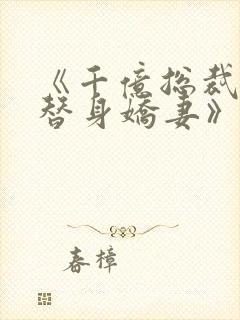 《千億总裁
替身嬌妻》
春樟